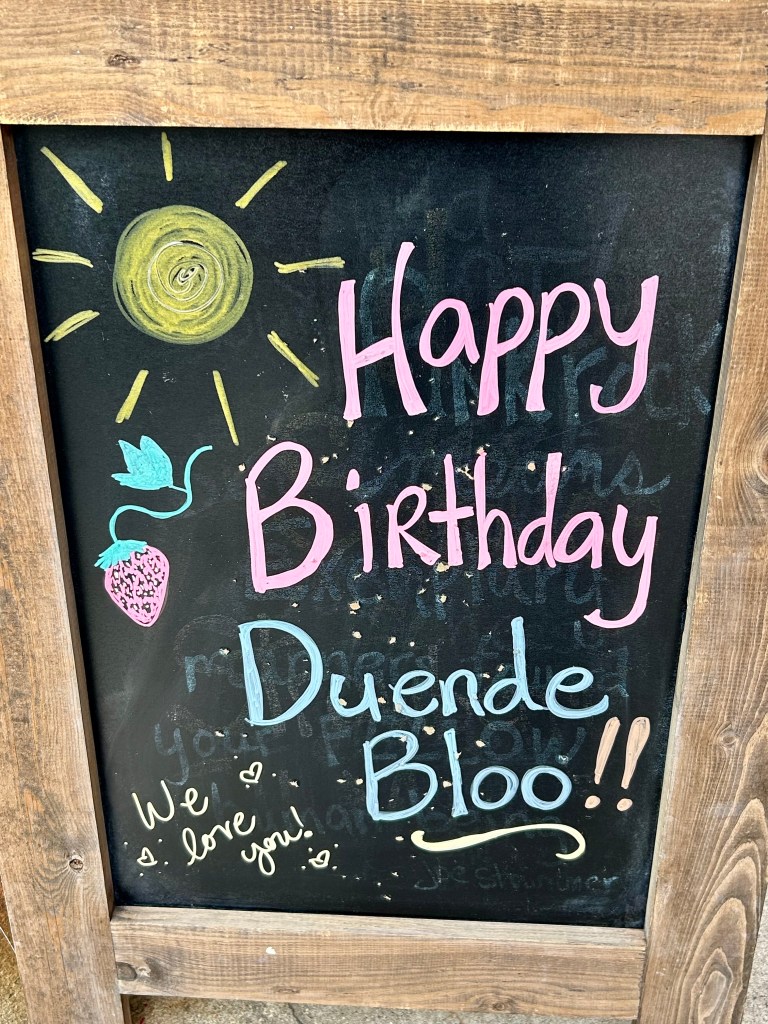 Happy
Birthday
Duende
Bloo!!
We
love
you!